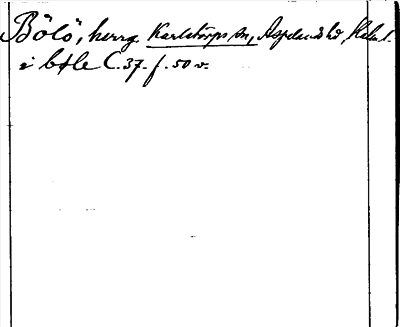 Bölö, herrg. Karlstorps sn, Aspelands hd, Kalm l.
i btle C. 37. f. 50 v.